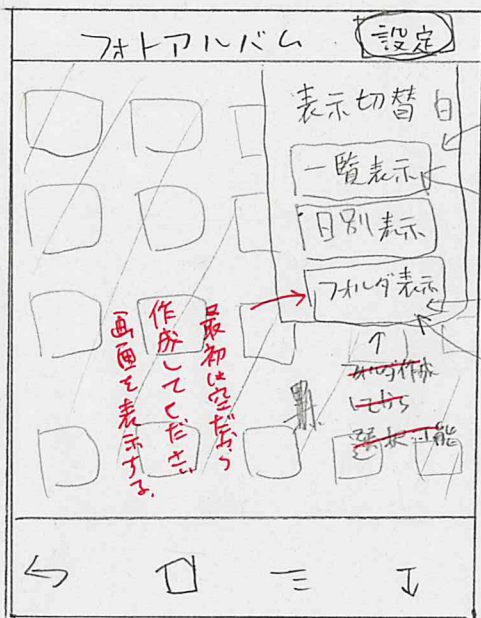 フォトアルバム
設定
表示切替
白
一覧表示
日別表示
フォルダ表示
最初は空だから
作成してください
画面を表示する。
フォルダ作成
してから
選択可能
黒